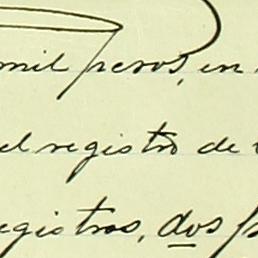 mil pesos, en
el registro de
registros, dos